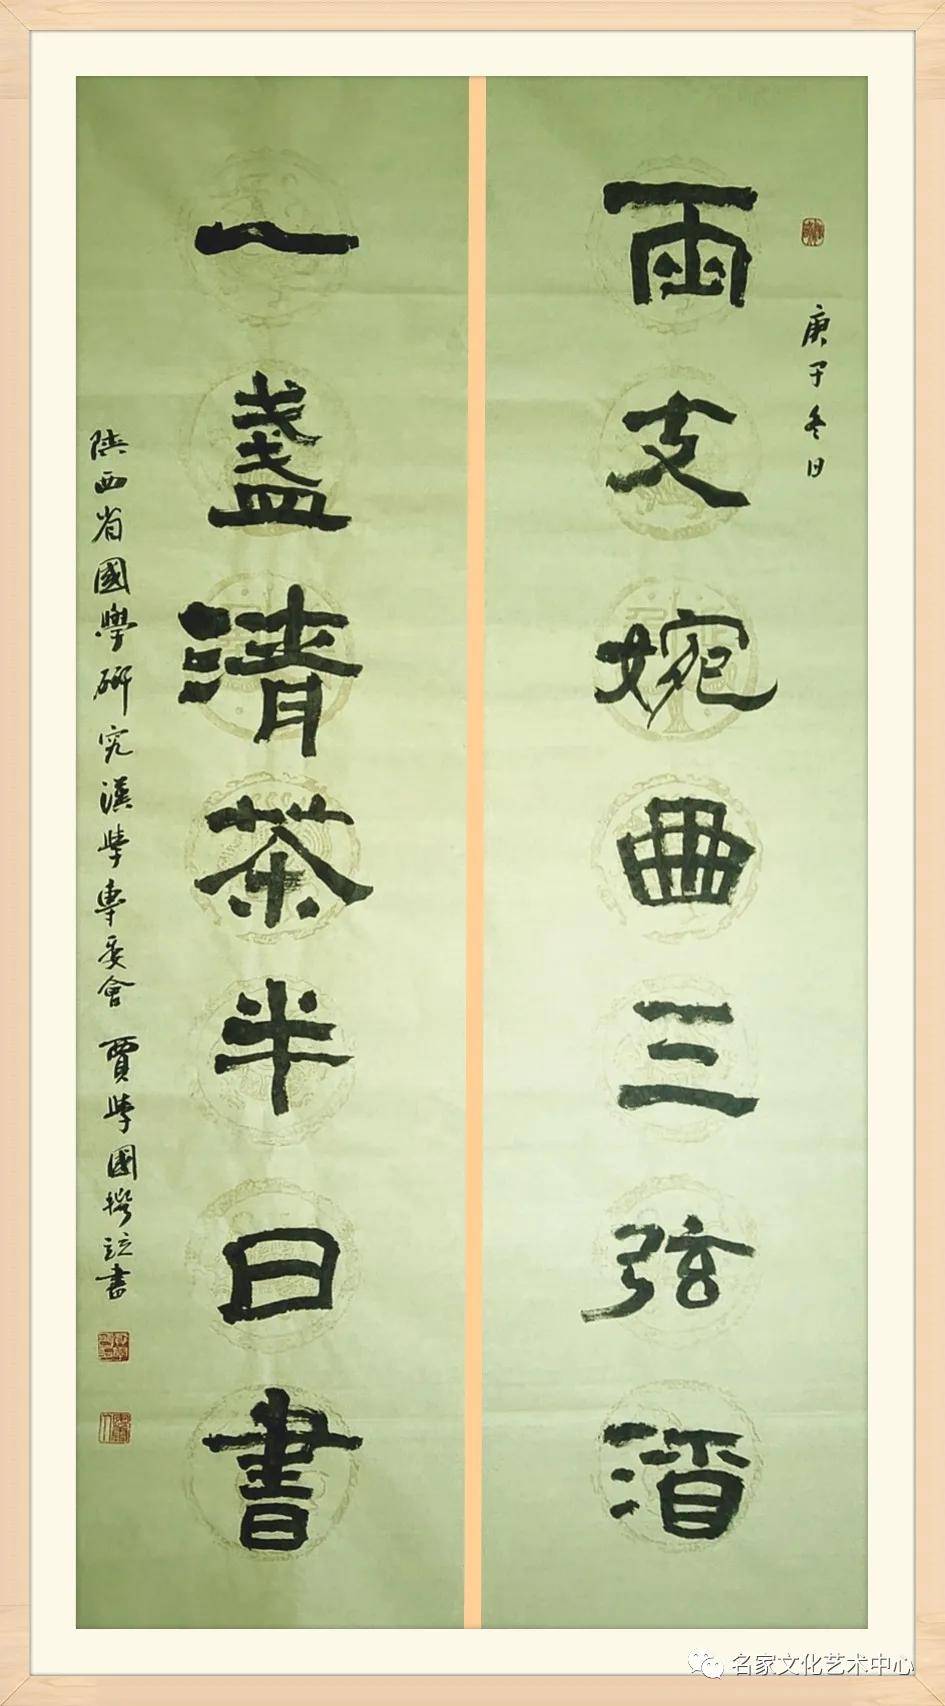 庚子冬日
兩支婉曲三弦酒
一盞清茶半日書
陝西省國學研究漢學專委會 賈學國撰竝書
名家文化艺术中心